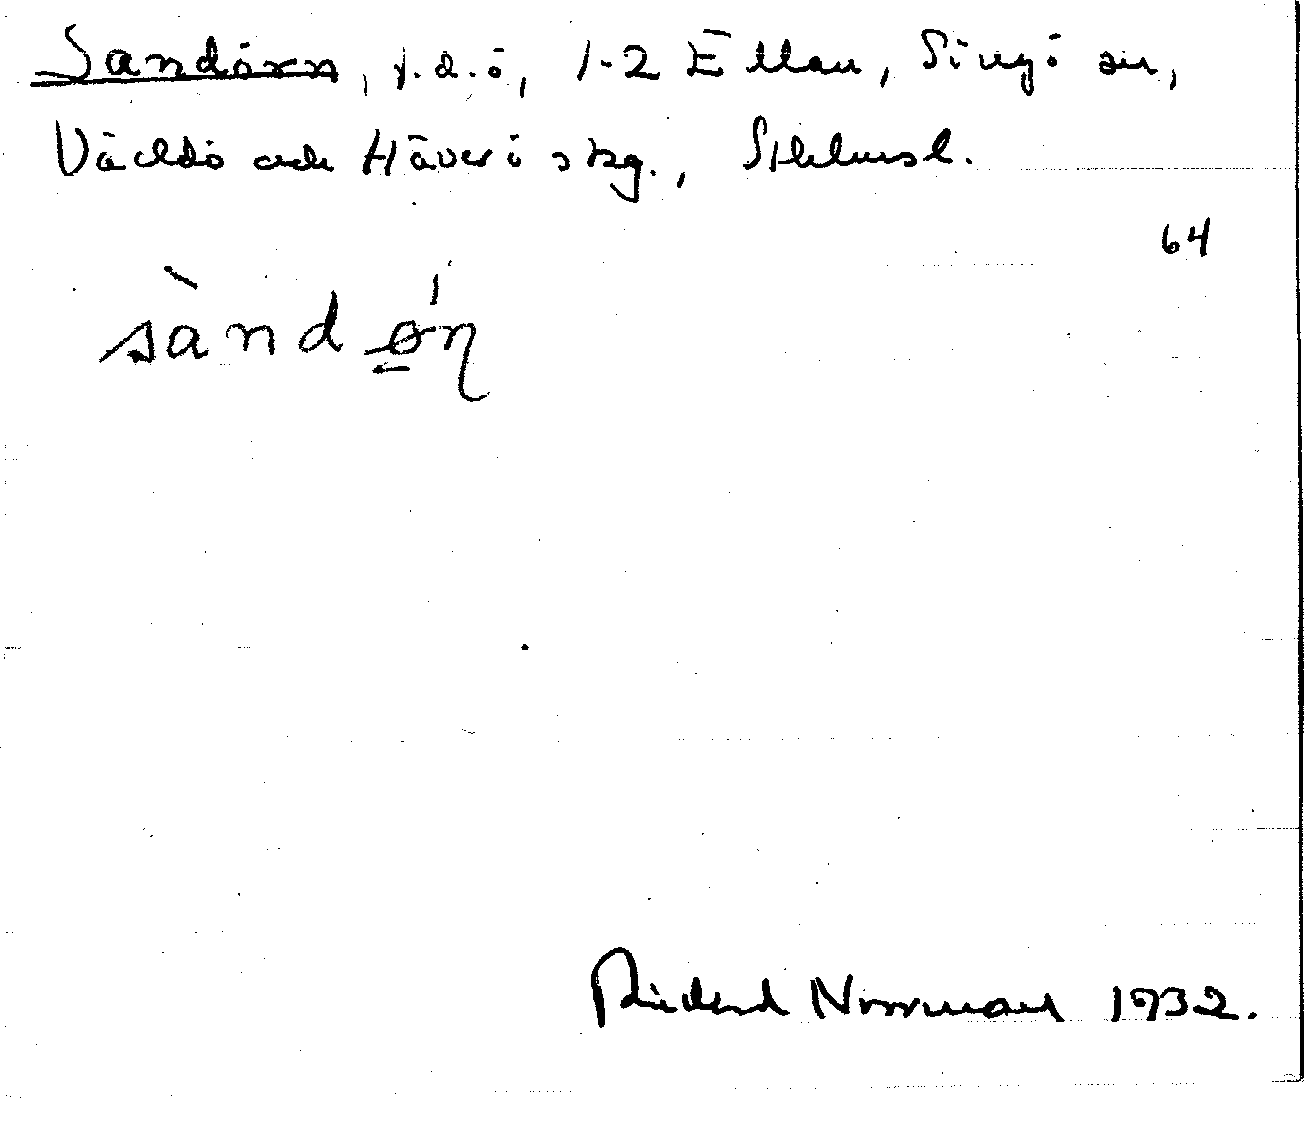 Sandörn, f.d.ö, 1-2 Ellan, Singö sn,
Väddö och Häverö skg., Sthlmsl.
64
sàndǿn
Rickard Norrman 1932.